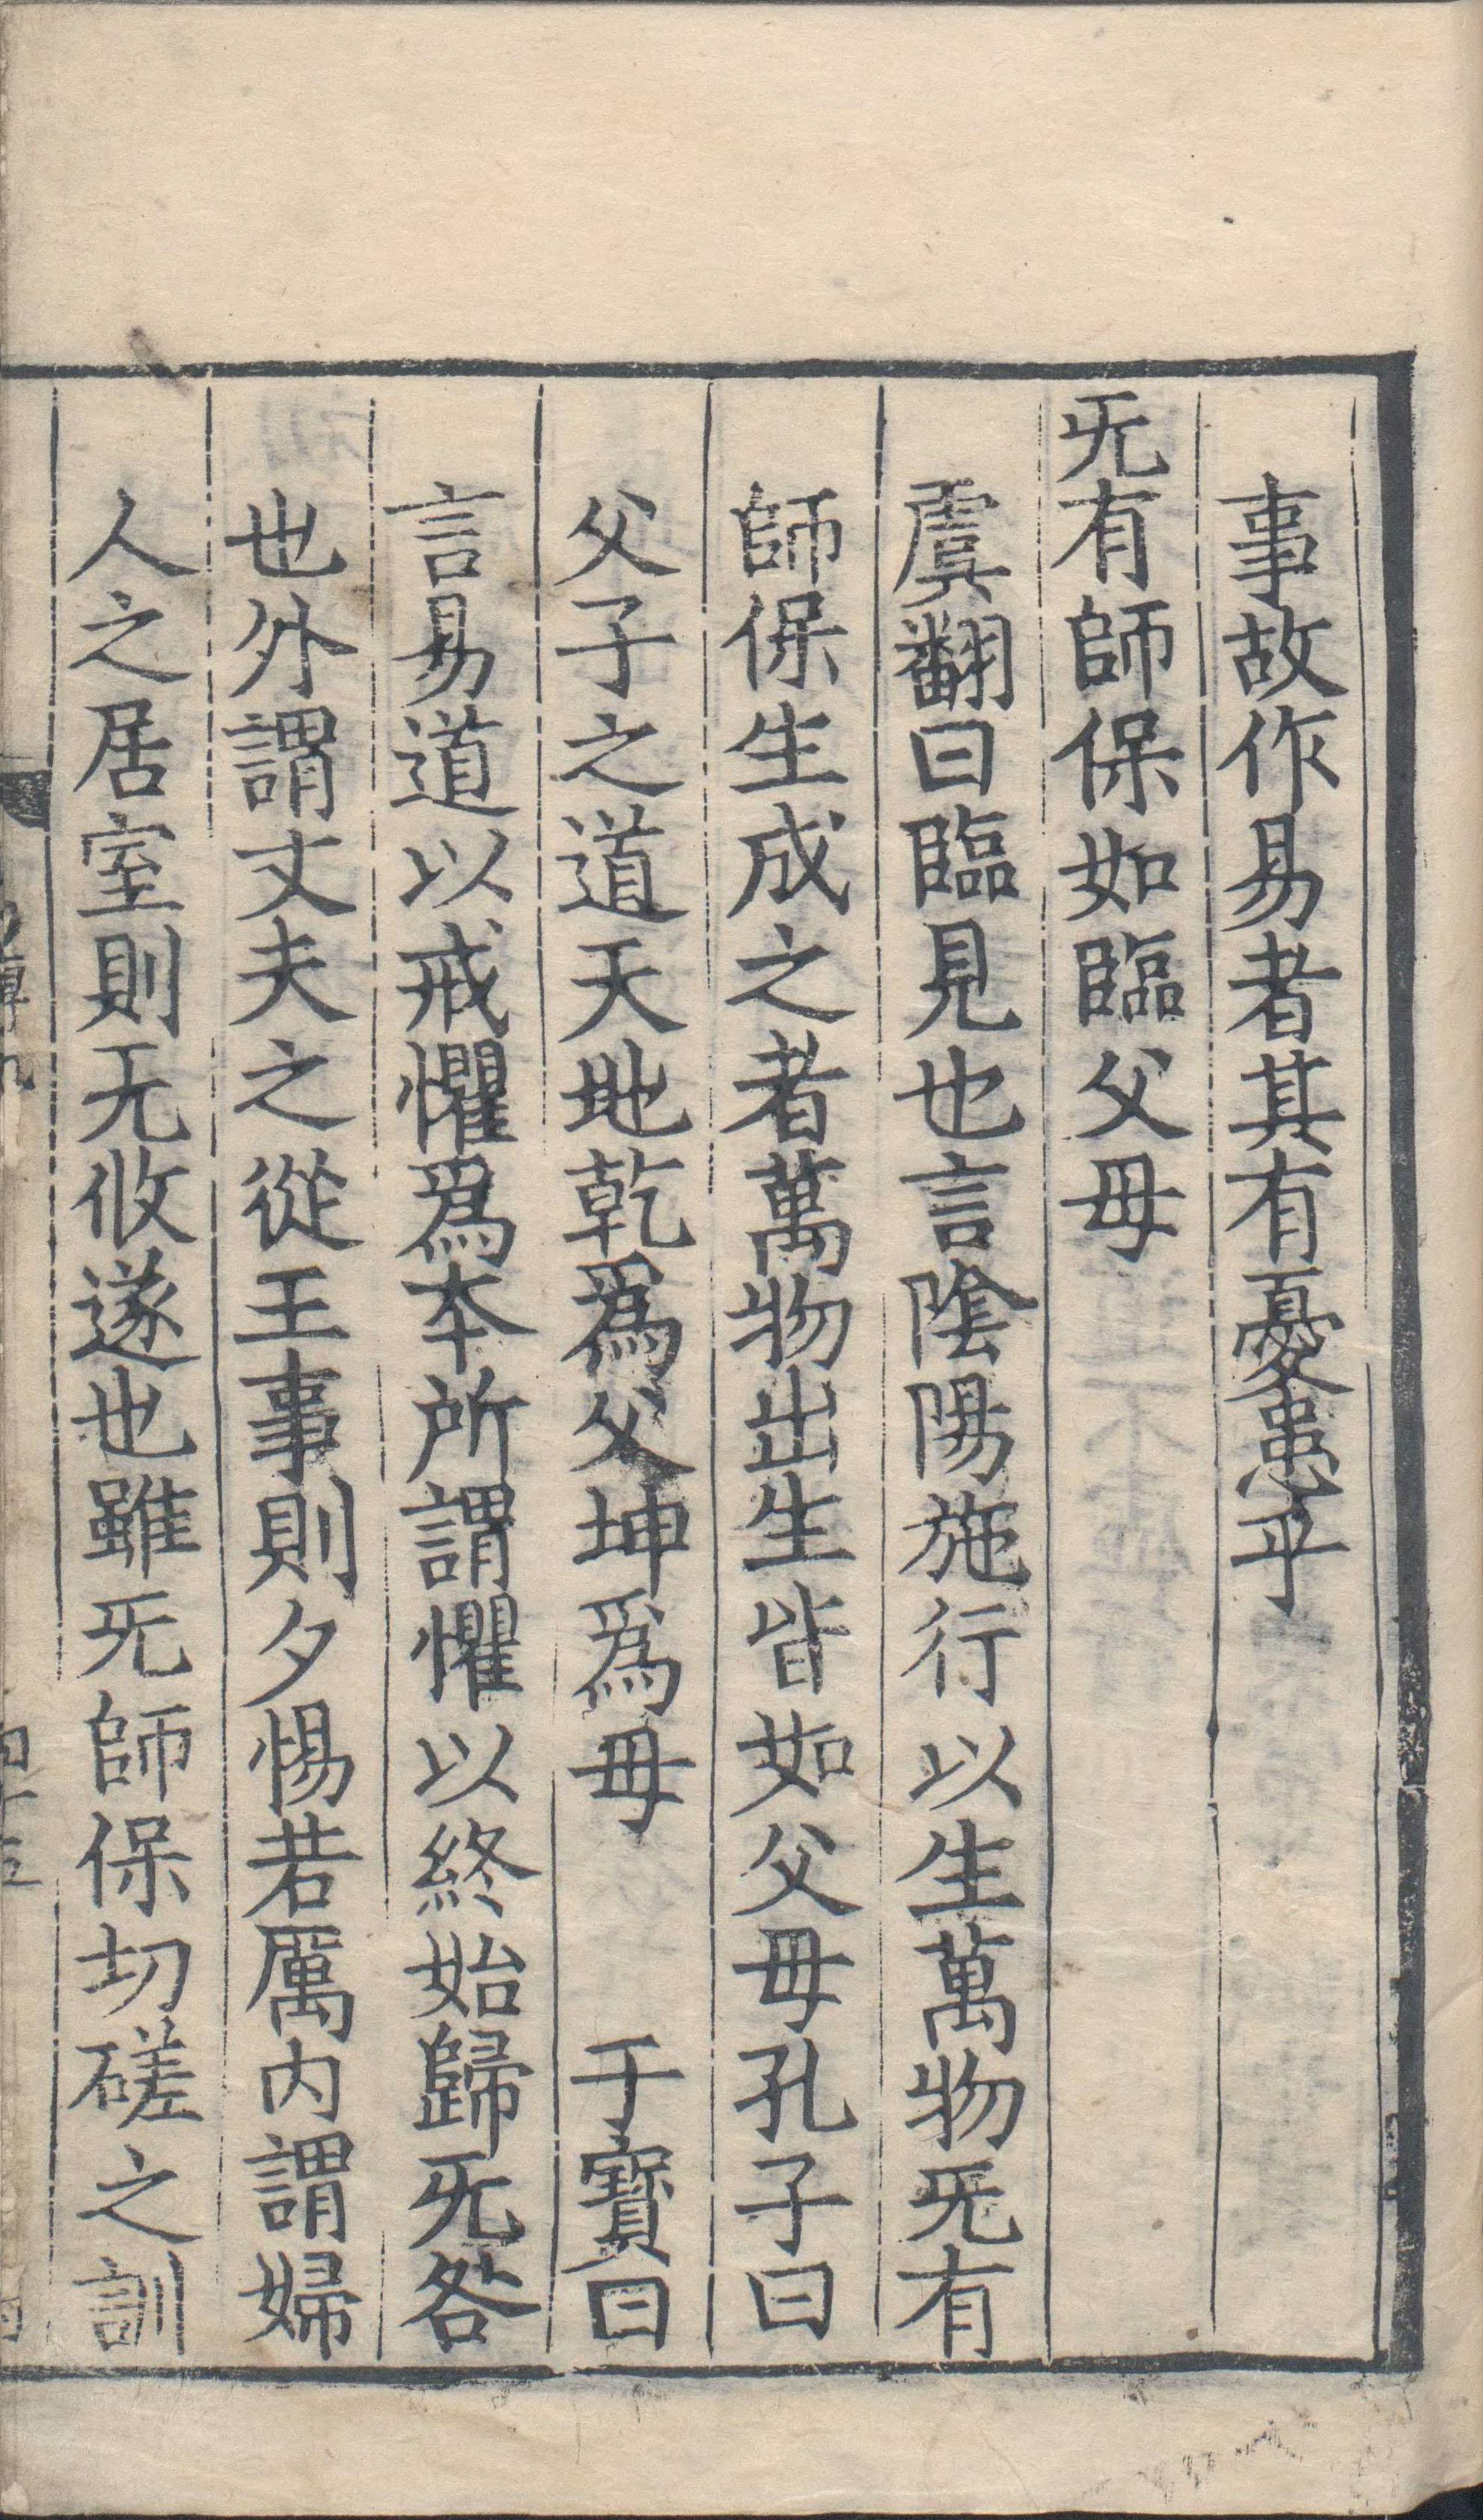 事故作易者其有憂患乎
旡有師保如臨父母
虞翻曰臨見也言陰陽施行以生萬物旡有
師保生成之者萬物出生皆如父母孔子曰
父子之道天地乾爲父坤爲母　干寶曰
言易道以戒懼爲本所謂懼以終始歸旡咎
也外謂丈夫之從王事則夕惕若厲内謂婦
人之居室則无攸遂也雖旡師保切磋之訓